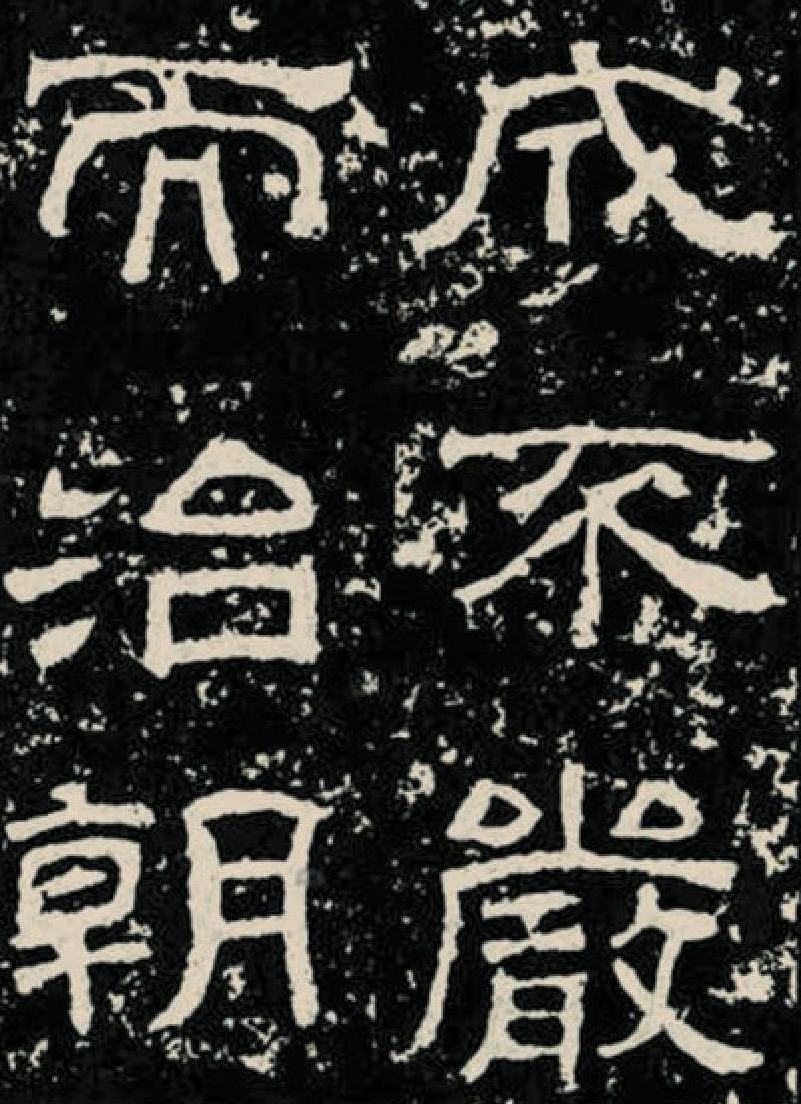 成不嚴
而治朝